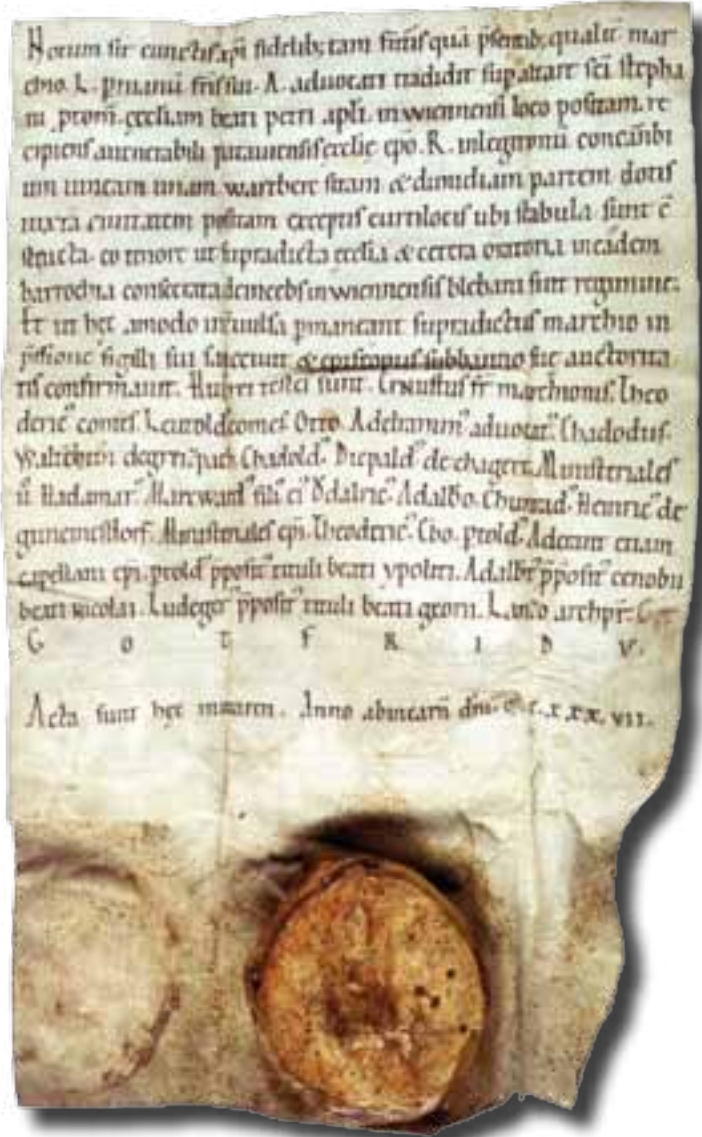 Notum sit cunctis xp̄i fidelib; tam futuris quā p̄sentib; qualit̄ mar
chio. L. p manū fr̄is sui. A. aduocati tradidit sup altare sc̄i stepha
ni ꝓtom̄. ecclesiam beati petri apl̄i. in wiennensi loco positam. re
cipiens a uenerabili patauiensis ecclię ep̄o. R. in legitimū concābi
um uineam unam wartberc sitam & dimidiam partem dotis
iuxta ciuitatem positam exceptis curtilocis ubi stabula sunt c̄
structa. eo tenore ut supradicta ecclesia & cetera oratoria in eadem
barrochia consecrata deinceps in wiennensis plebani sint regimine.
Et ut hęc amodo inc̄uulsa p̄maneant supradictus marchio in
p̄ssione sigilli sui sanctiuit & episcopus sub banno sue auctorita
tis confirmauit. Huius rei testes sunt. Ernustus fr̄ marchionis. Theo
deric᷒ comes. Leutold comes. Otto. Adelramm᷒ aduocat᷒. Chadodus.
Walchun de Chadold᷒. Diepald᷒ de chagere. Ministeriales
ū Hadamar᷒. Marcward᷒ fili᷒ ei᷒ Ǒdalric᷒. Adalbo. Chunrad᷒. Heinric᷒ de
gunemestorf. Ministeriales ep̄i. Theoderic᷒. Ebo. ꝓtold᷒. Aderant etiam
capellani ep̄i. ꝓtold᷒ p̄posit᷒ tituli beati ypoliti. Adalb̄t᷒ p̄posit᷒ cenobii
beati nicolai. Ludeger᷒ p̄posit᷒ tituli beati georii. Lanzo archipr̄.
G O T F R I D V.
Acta sunt hęc mutaren. Anno ab incarn̄ dn̄i. ꝏ. c. x x x. vii.